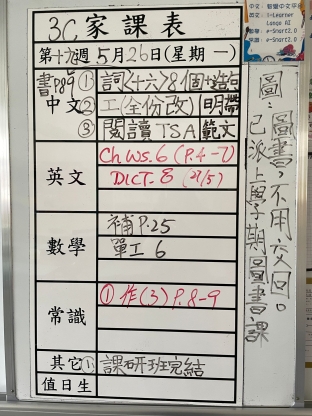 3C 家課表
第十九週 5月26日(星期一)
書P.89 ① 詞<十六>8個+造句
中文 ② 工(全份改) 明帶
③ 閱讀 TSA 範文
英文 Ch WS. 6 (P.4-7)
DICT. 8 (27/5)
數學 補 P.25
單工 6
常識 ① 作(3) P.8-9
其它 ① 課研班完結
值日生
圖：圖書，不用交回。
已派上學期圖書課
中文：
英文：i-Learner
e-Smart2.0
e-Smart2.0